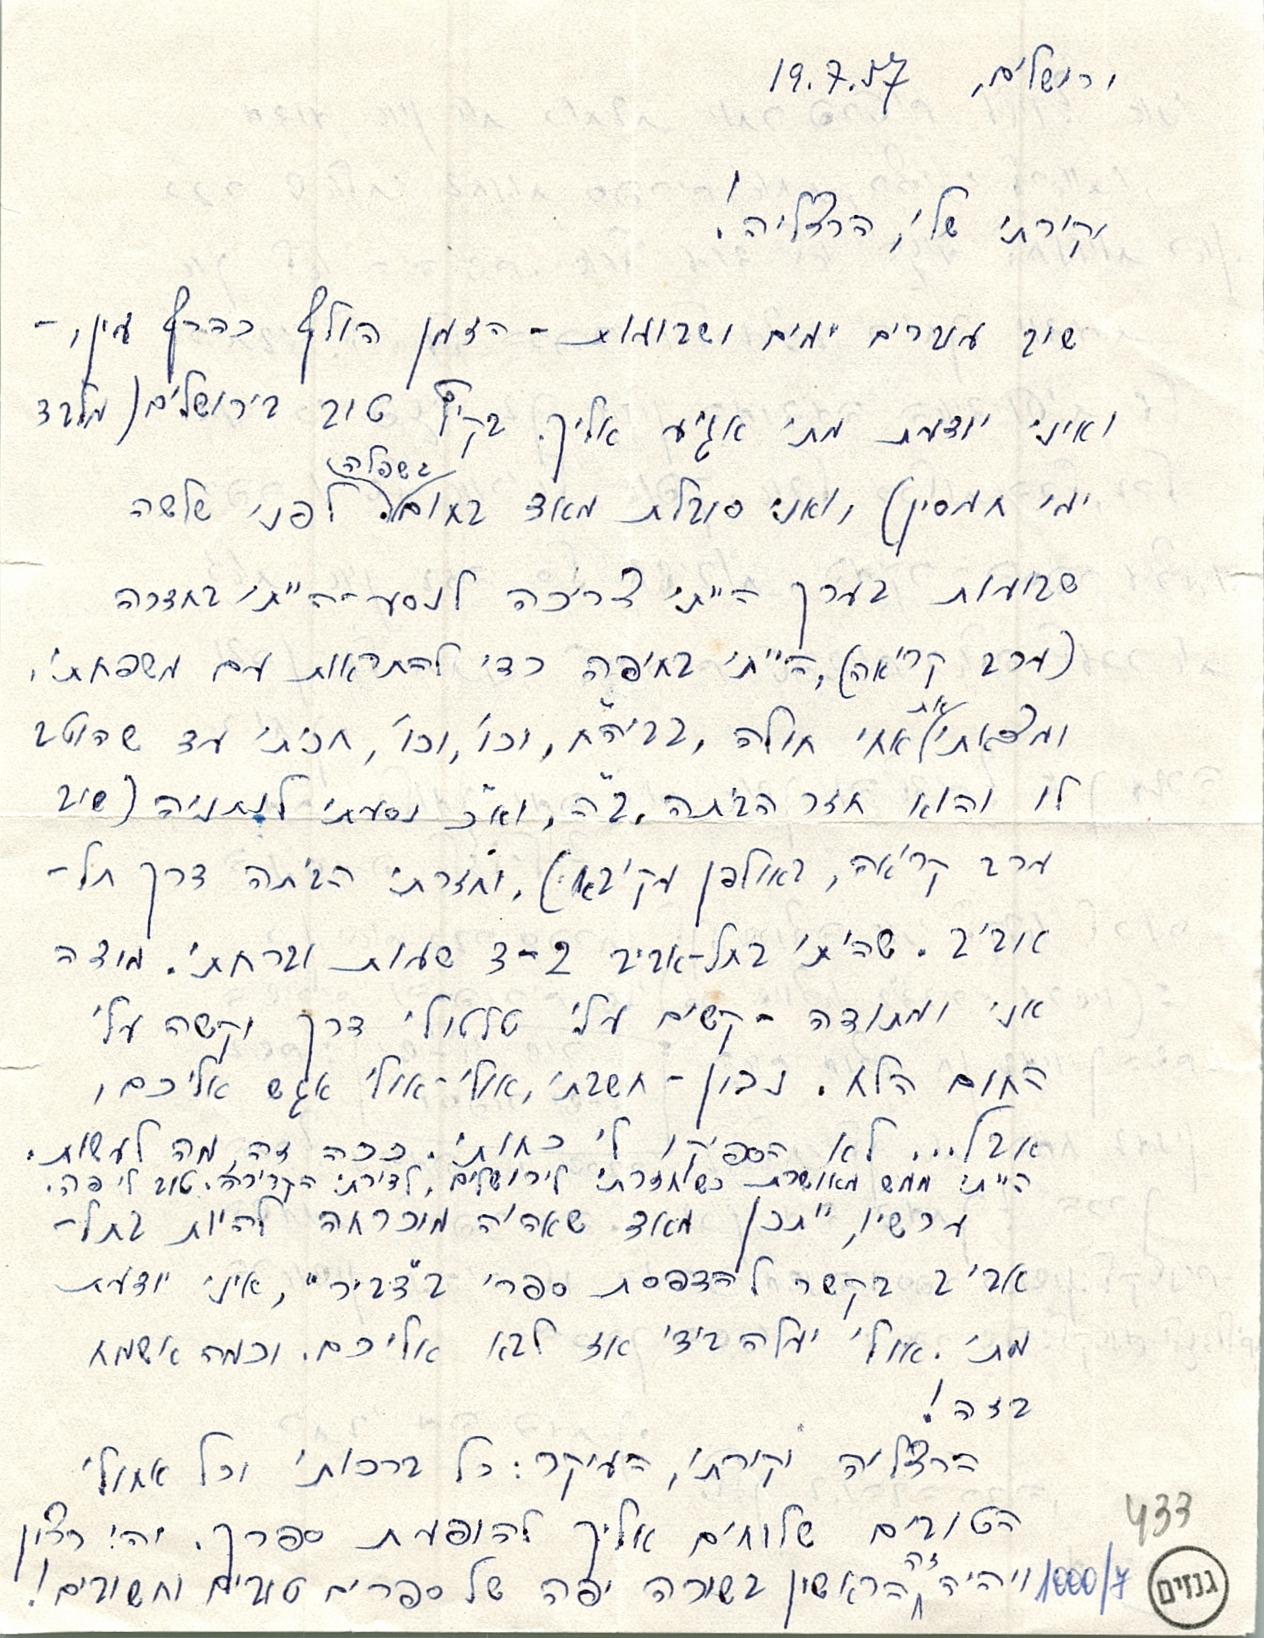 ירושלים, 19.7.57
יקירתי שלי, הרצליה!
שוב עוברים ימים ושבועות - הזמן הולך כהרף עין, -
ואיני יודעת מתי אגיע אליך. בקיץ טוב בירושלים (מלבד
ימי חמסין), ואני סובלת מאד בחום בשפלה. לפני שלשה
שבועות בערך הייתי צריכה לנסע - הייתי בחדרה
(ערב קריאה), הייתי בחיפה כדי להתראות עם משפחתי,
ומצאתי את אחי חולה, בביה"ח, וכו', וכו', חכיתי עד שהוטב
לו והוא חזר הביתה, ב"ה, ואח"כ נסעתי לנתניה (שוב
ערב קריאה, באולפן עקיבא), וחזרתי הביתה דרך תל-
אביב. שהיתי בתל-אביב 2-3 שעות וברחתי. מודה
אני ומתודה - קשים עלי טלטולי דרך וקשה עלי
החום הלח. נכון - חשבתי, אולי-אולי אגש אליכם,
אבל... לא הספיקו לי כחותי. ככה זה, מה לעשות.
הייתי ממש מאושרת כשחזרתי לירושלים, לדירתי הקרירה. טוב לי פה.
עכשיו, ייתכן מאד שאהיה מוכרחה להיות בתל-
אביב בקשר להדפסת ספרי ב"דביר", איני יודעת
מתי. אולי יעלה בידי אז לבא אליכם. וכמה אשמח
בזה!
הרצליה יקירתי, העיקר: כל ברכותי וכל אחולי
הטובים שלוחים אליך להופעת ספרך. יהי רצון
ויהיה זה הראשון בשורה יפה של ספרים טובים וחשובים!
433
1000/7
גנזים